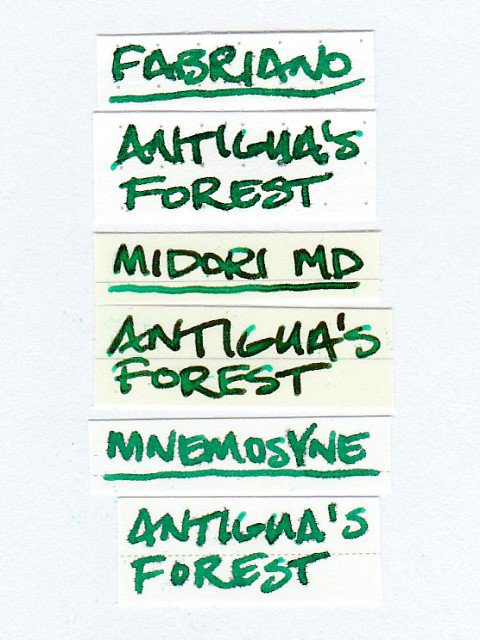 FABRIANO
ANTIGUA'S
FOREST
MIDORI MD
ANTIGUA'S
FOREST
MNEMOSYNE
ANTIGUA'S
FOREST